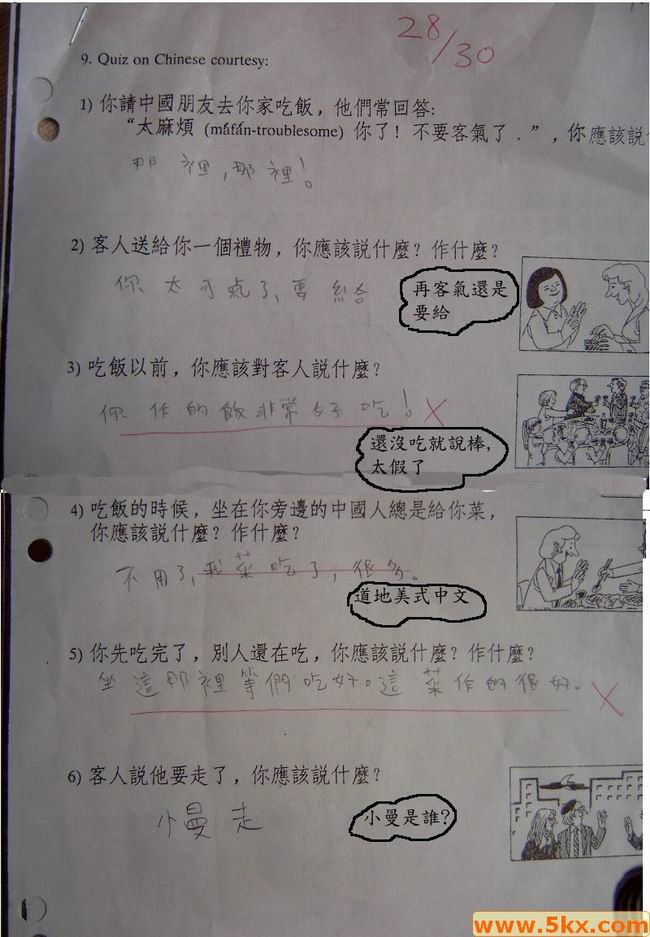 28/30
9. Quiz on Chinese courtesy:
1) 你請中國朋友去你家吃飯，他們常回答:
“太麻煩 (máfán-troublesome) 你了！不要客氣了．”，你應該說
那裡，那裡！
2) 客人送給你一個禮物，你應該說什麼？作什麼？
你太可氣了、要給
再客氣還是
要給
3) 吃飯以前，你應該對客人說什麼？
你作的飯非常好吃！
還沒吃就說棒，
太假了
4) 吃飯的時候，坐在你旁邊的中國人總是給你菜，
你應該說什麼？作什麼？
不用了，我菜吃了，很多。
道地美式中文
5) 你先吃完了，別人還在吃，你應該說什麼？作什麼？
坐這那裡等們吃好。這菜作的很好。
6) 客人說他要走了，你應該說什麼？
小曼走
小曼是誰?
www.5kx.com